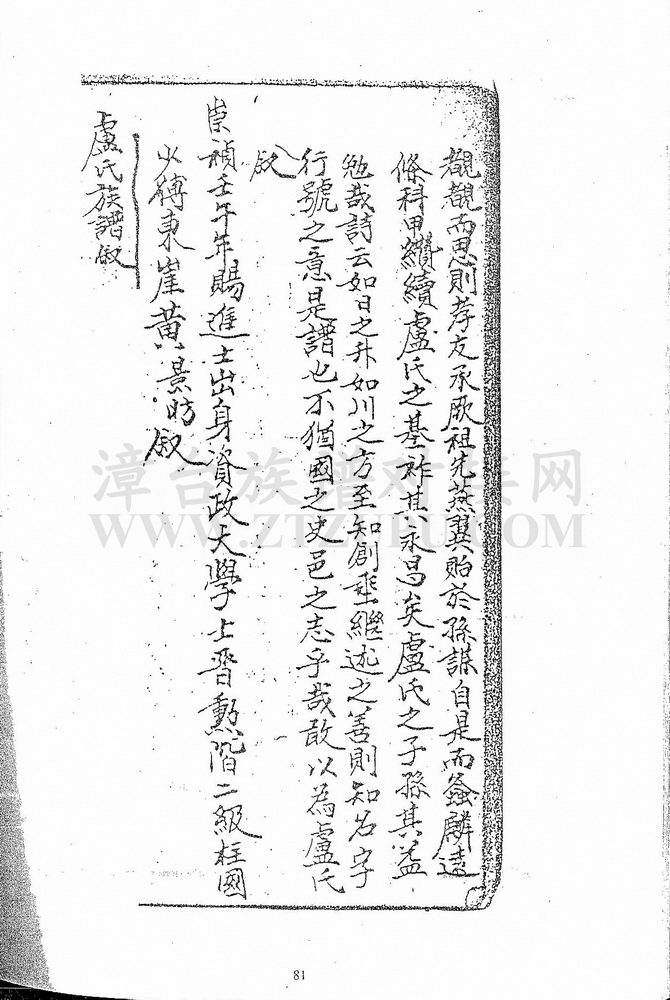 覩觀而思則孝友承厥祖先燕翼貽於孫謀自是而螽麟遠
條科甲纘續盧氏之基祚其永昌矣盧氏之子孫其益
勉哉詩云如日之升如川之方至知創垂繼述之善則知名字
行號之意是譜也不猶國之史邑之志乎哉敢以為盧氏
敘
崇禎壬午年賜進士出身資政大學士晋勲階二級柱國
少傅東崖黃景昉敘
盧氏族譜敘
漳台族谱对接网
WWW.ZTZUPU.COM
81